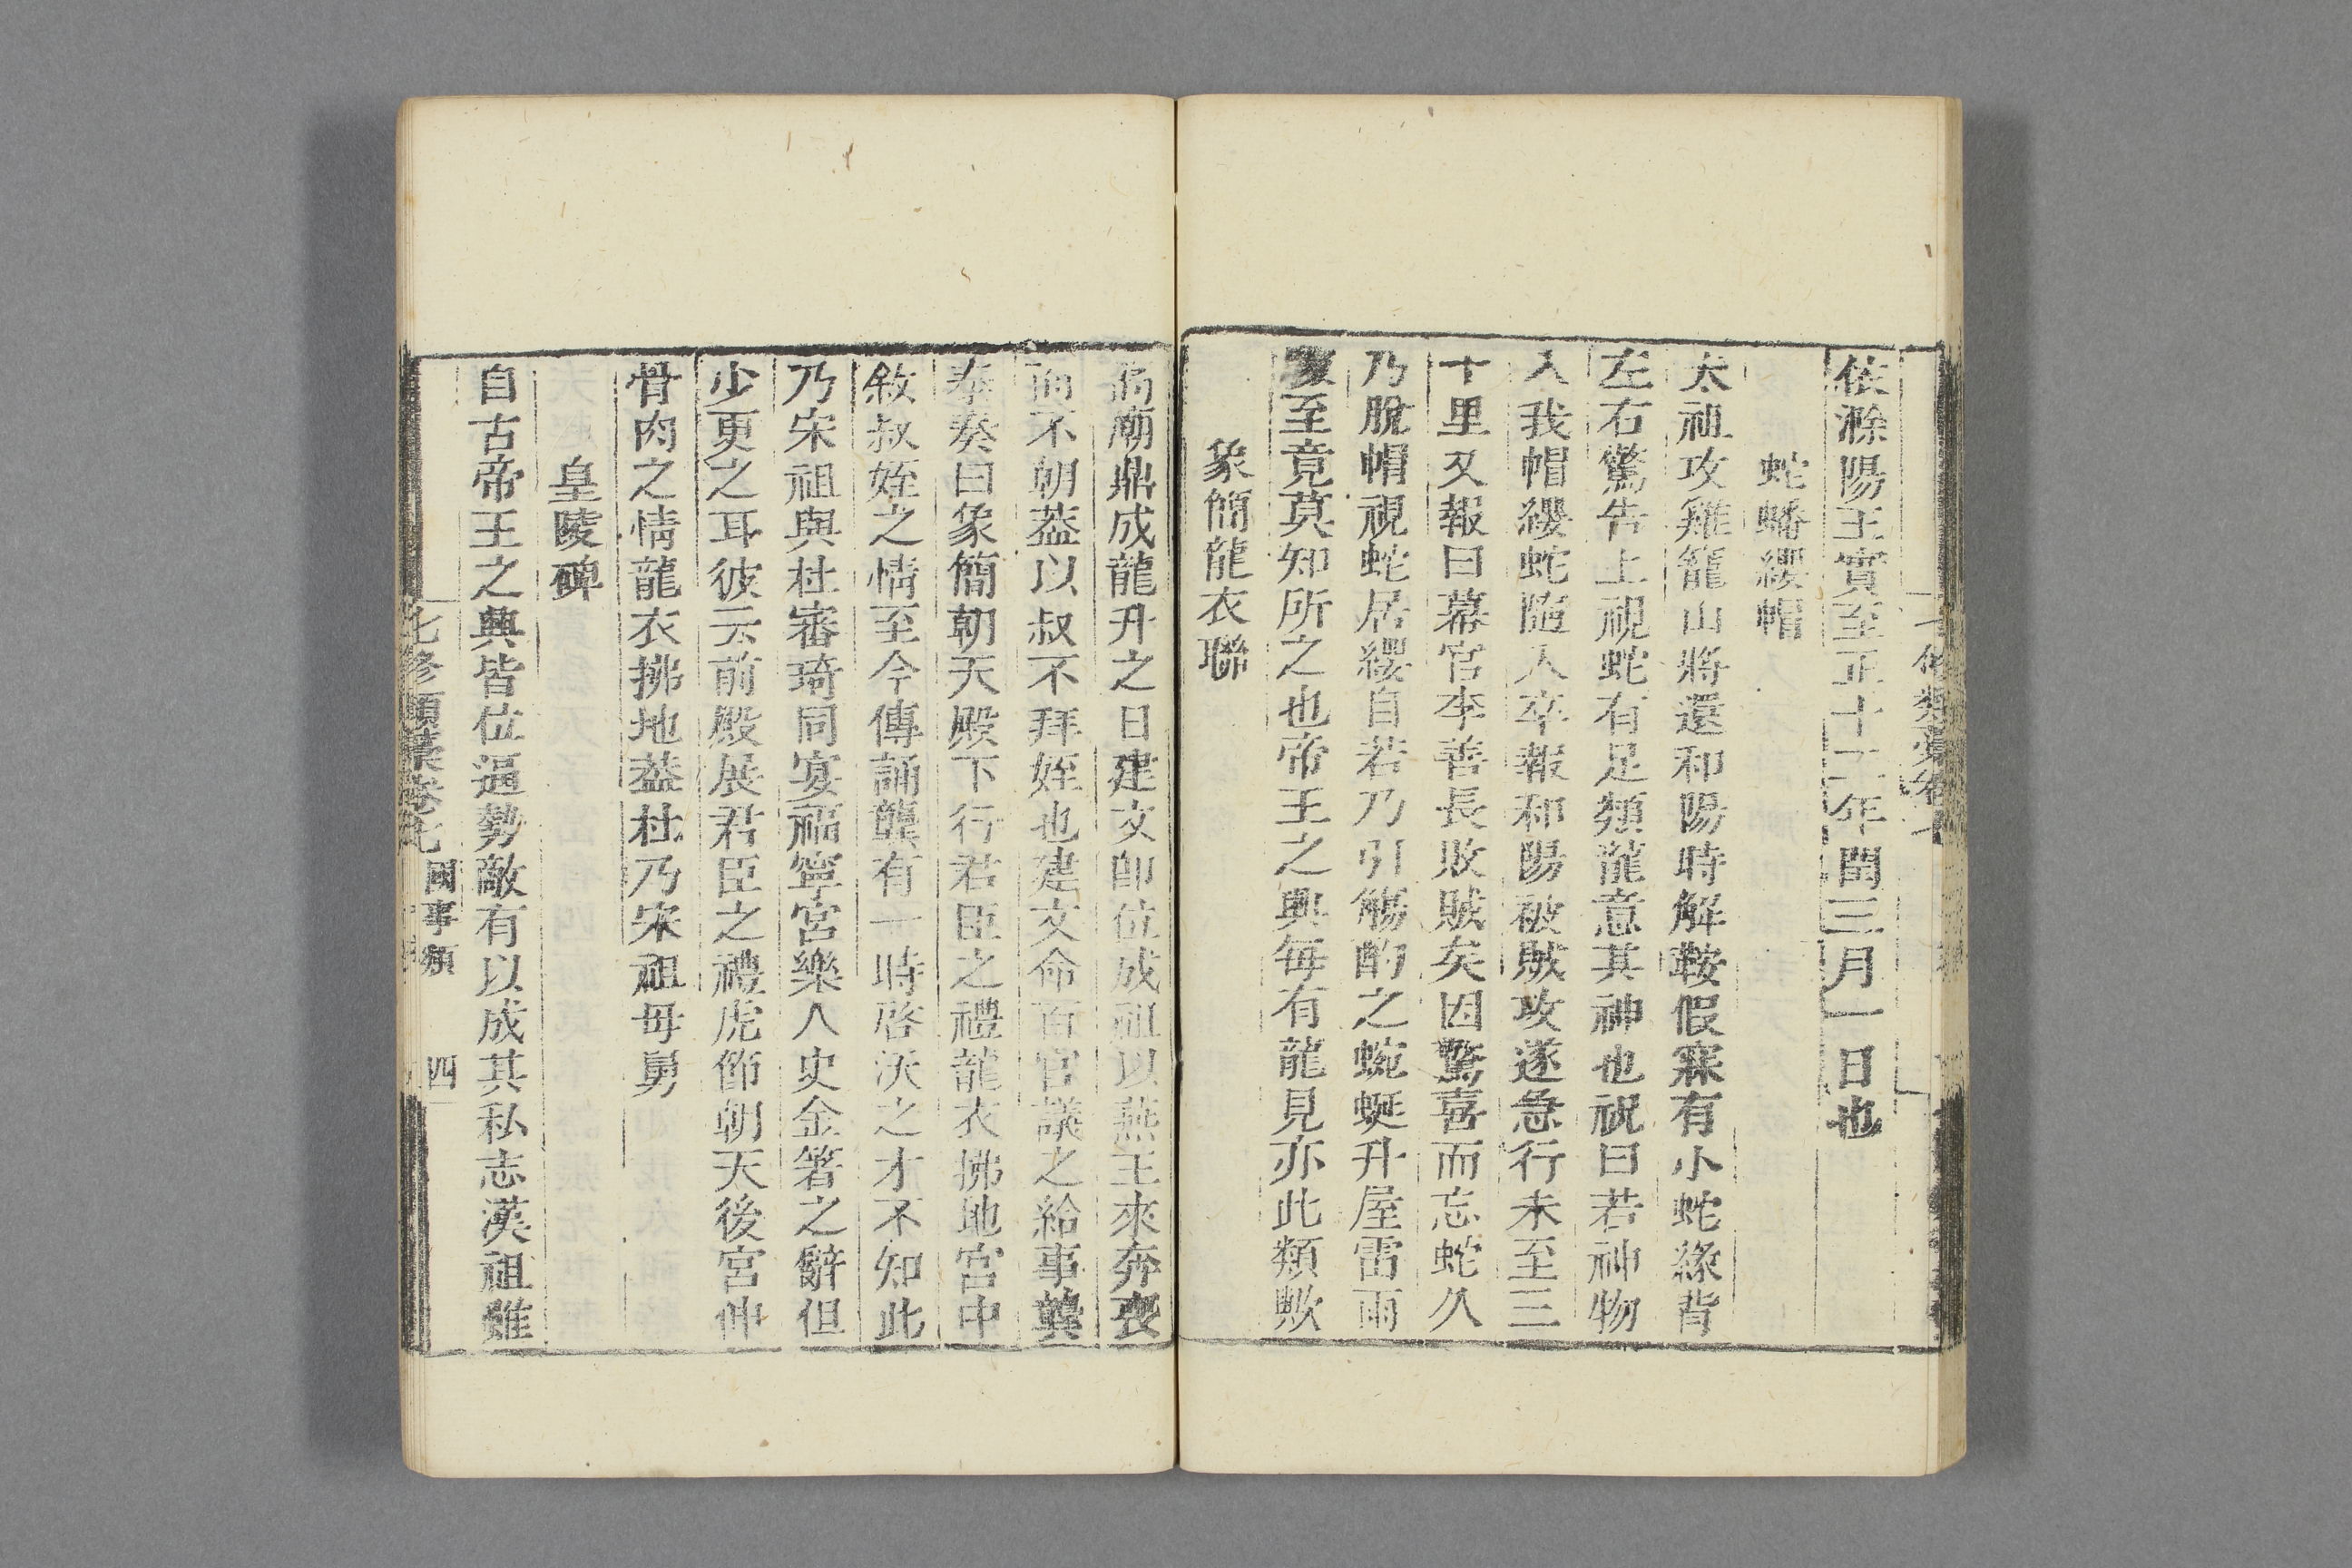 依滁陽王實至正十二年閏三月一日也
蛇蟠纓帽
太祖攻雞籠山將還和陽時解鞍假寐有小蛇緣背
左右驚告上視蛇有足類龍意其神也祝曰若神物
入我帽纓蛇隨入卒報和陽被賊攻遂急行未至三
十里又報曰幕官李善長敗賊矣因驚喜而忘蛇久
乃脫帽視蛇居纓自若乃引觴酌之蜿蜒升屋雷雨
至竟莫知所之也帝王之興每有龍見亦此類歟
象簡龍衣聯
廟鼎成龍升之日建文卽位成祖以燕王來奔喪
而不朝葢以叔不拜姪也建文命百官議之給事龔
泰奏曰象簡朝天殿下行君臣之禮龍衣拂地宮中
敘叔姪之情至今傳誦龔有一時啓沃之才不知此
乃宋祖與杜審琦同宴福寧宮樂人史金箸之辭但
少更之耳彼云前殿展君臣之禮虎節朝天後宮伸
骨肉之情龍衣拂地葢杜乃宋祖母舅
皇陵碑
自古帝王之興皆位逼勢敵有以成其私志漢祖雖
七修類稾卷七 國事類 四